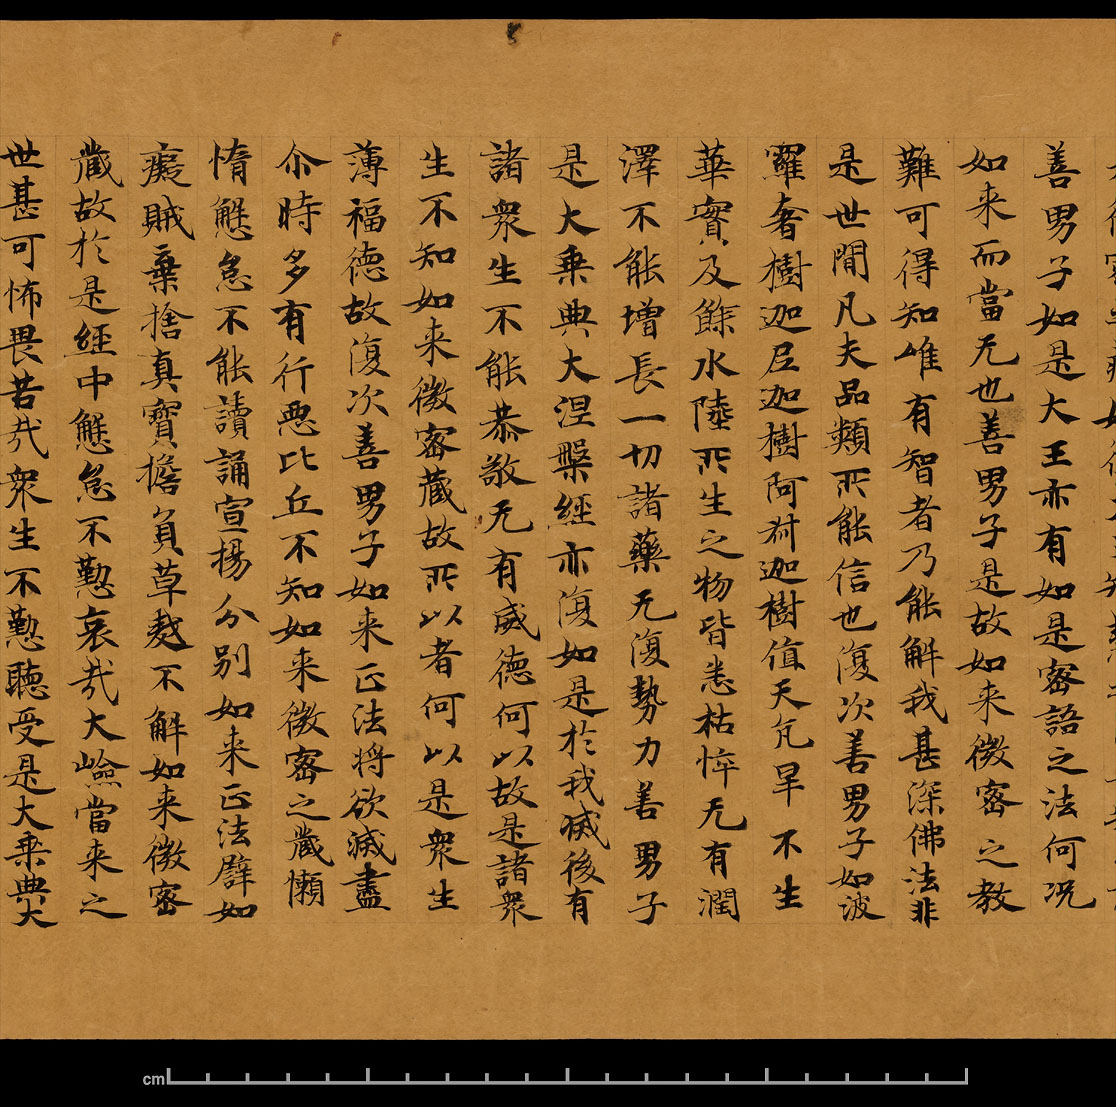 善男子如是大王亦有如是密語之法何况
如来而當无也善男子是故如来微密之教
難可得知唯有智者乃能解我甚深佛法非
是世間凡夫品類所能信也復次善男子如波
羅奢樹迦尼迦樹阿尗迦樹值天亢旱不生
華實及餘水陸所生之物皆悉枯悴无有潤
澤不能增長一切諸藥无復勢力善男子
是大乗典大涅槃經亦復如是於我滅後有
諸衆生不能恭敬无有威德何以故是諸衆
生不知如来微密藏故所以者何以是衆生
薄福德故復次善男子如来正法將欲滅盡
尒時多有行惡比丘不知如来微密之藏懶
惰懈怠不能讀誦宣揚分别如来正法譬如
癡賊棄捨真寶擔負草𪍿不解如来微密
藏故於是經中懈怠不懃哀㢤大嶮當来之
世甚可怖畏苦㢤衆生不懃聽受是大乗典大